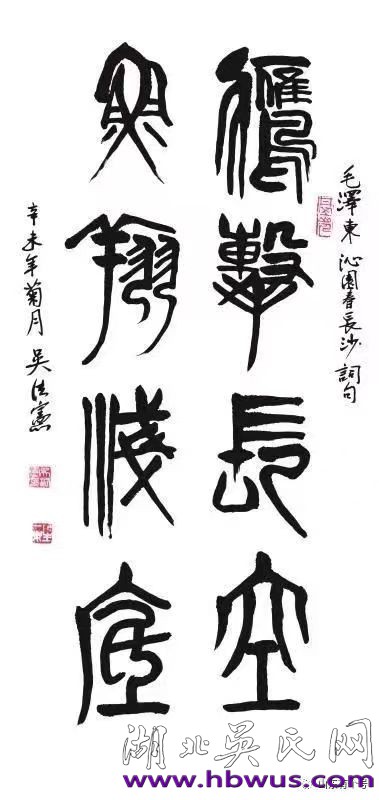 毛澤東沁園春長沙詞句
鷹擊長空
魚翔淺底
辛未年菊月 吳法憲
湖北吳氏网
www.hbwus.com